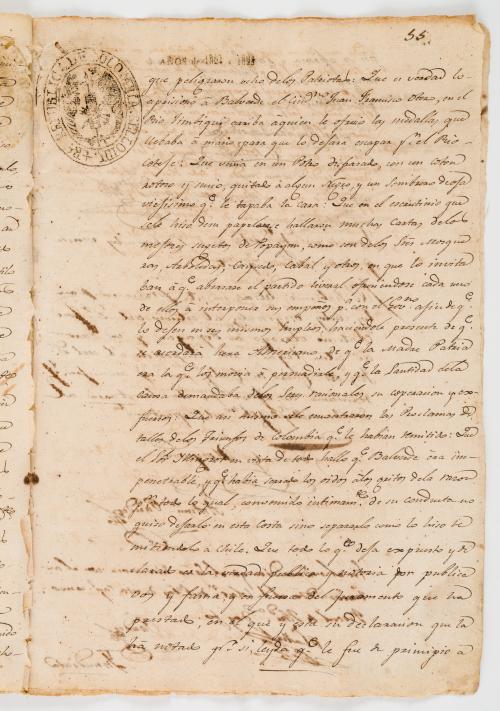 55
REPUBLICA DE COLOMBIA
que peligraron ocho delos Patriotas: Que es verdad lo
aprisiono á Balverde el Juan Francisco en el
Rio arriba aquien le ofrecio las medallas que
llebaba á mano para que lo dejara escapar pr. el Rio
Que venia en un Potro disparado, con un coton
rotoso y sucio, quitado á algun Negro, y un Sombrero de
viejissimo qe. le tapaba la cara: Que en el escrutinio que
se le hizo de papeles se hallaron muchas Cartas, delos
mejores sugetos de Popayan, como son delos Sres. Mosque
ras, Arboledas, Caycedo, Cabal y otros, en que lo invita
ban á qe. abrazase el partido liveral ofreciendose cada uno
de ellos á interponer sus empeños pa. con el Govno. á fin de qe.
lo dejen en su mismo Empleo, haciendole presente de qe.
se acordara hera Americano, de qe. la Madre Patria
era la qe. los movia á persuadirle, y qe. la Santidad dela
causa demandaba delos Seres racionales su coperacion y ex-
fuerzos: Que asi mismo se le encontraron las Proclamas de
talles delos Triunfos de Colombia qe. le habian remitido: Que
el Sor. en vista de todo hallo qe. Balverde era im-
penetrable, y qe. habia serrado los oidos álos gritos dela razon
pr. todo lo qual, convenido intimamte. de su conducta no
quiso dejarlo en esta Costa sino separarlo como lo hiso re
mitiendolo á Chile. Que todo lo qe. deja expuesto y de
clarado es la verdad publica y notoria por publica
voz y fama y en fuerza del Juramento que ha
prestado, en el que y esta su declaracion que la
há notado pr. si, leyda qe. le fue de principio á